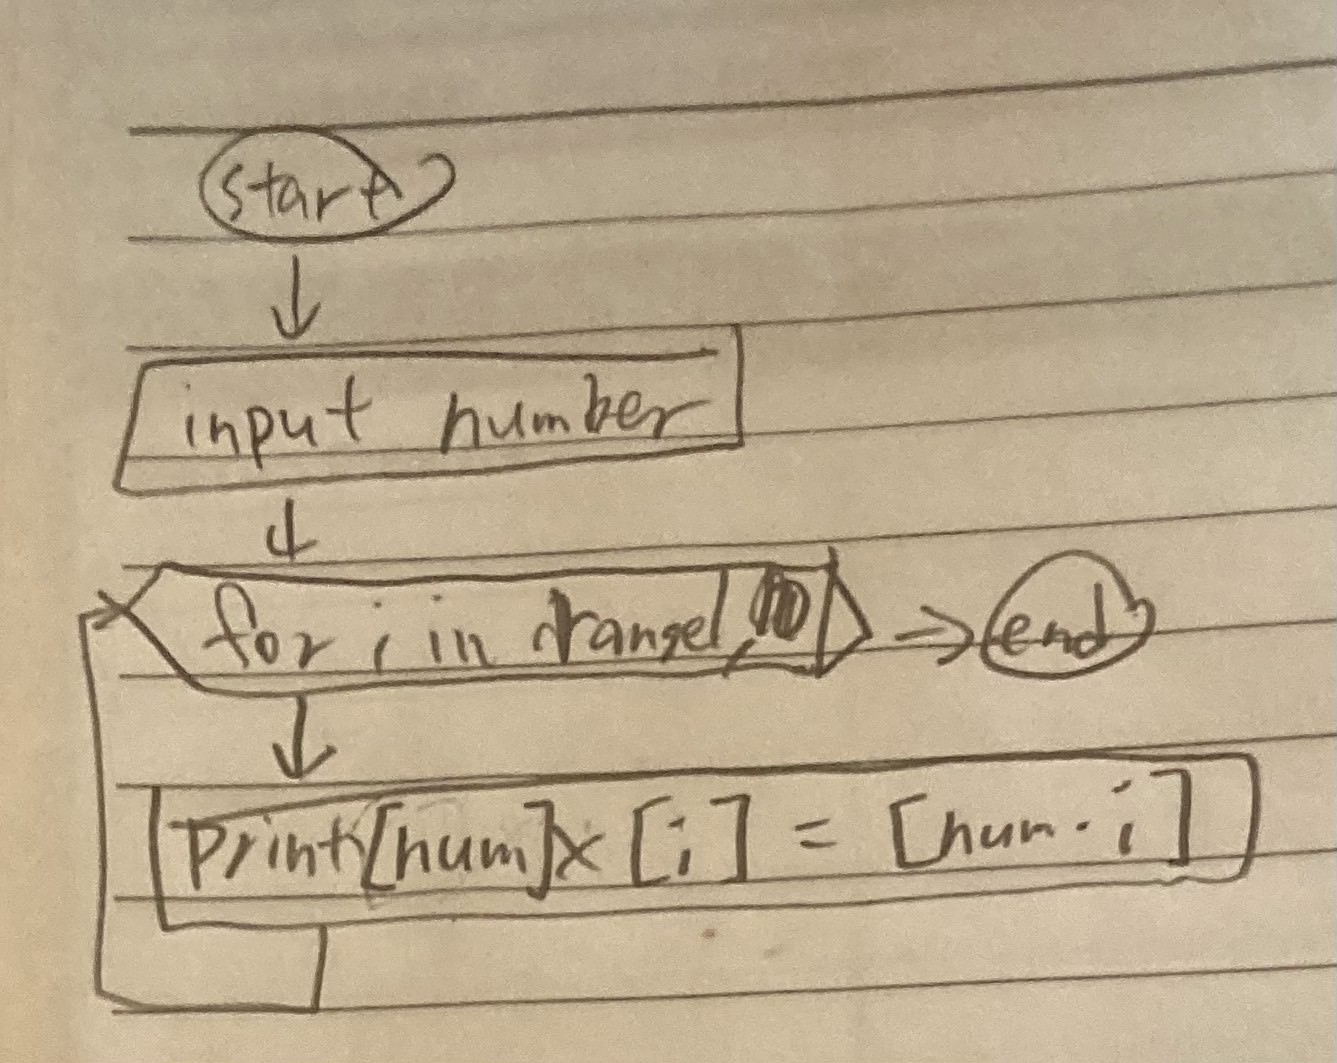 start
input number
for i in range 1, 10
end
Print [num] x [i] = [num · i]